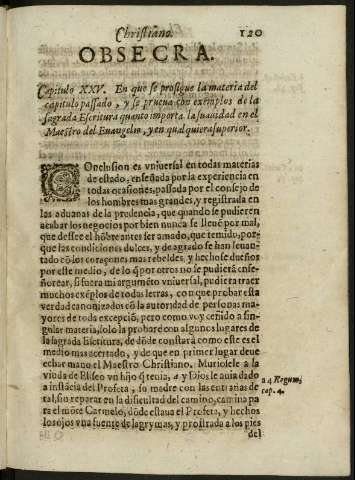 Christiano.
120
OBSECRA.
Capitulo XXV. En que se prosigue la materia del
capitulo passado, y se prueua con exemplos de la
sagrada Escritura quanto importa la suauidad en el
Maestro del Euangelio, y en qualquiera superior.
COnclusion es vniuersal en todas materias
de estado, enseñada por la experiencia en
todas ocasiones, passada por el consejo de
los hombres mas grandes, y registrada en
las aduanas de la prudencia, que quando se pudieren
acabar los negocios por bien nunca se lleue por mal,
que dessee el hõbre antes ser amado, que temido, por-
que las condiciones dulces, y de agrado se han leuan-
tado cõ los coraçones mas rebeldes, y hecho se dueños
por este medio, de lo q̃ por otros no se pudierã ense-
ñorear, si fuera mi argumẽto vniuersal, pudiera traer
muchos exẽplos de todas letras, con que probar esta
verdad canonizados cõ la autoridad de personas ma-
yores de toda excepciõ, pero como voy ceñido a sin-
gular materia, solo la probarè con algunos lugares de
la sagrada Escritura, de dõde constarà como este es el
medio mas acertado, y de que en primer lugar deue
echar mano el Maestro Christiano. Muriosele a la
viuda de Eliseo vn hijo q̃ tenia, a y Dios le auia dado
a instãcia del Profeta, su madre con las entrañas de
tal, sin reparar en la dificultad del camino, camina pa
ra el mõte Carmelo, dõde estaua el Profeta, y hechos
los ojos vna fuente de lagrymas, y prostrada a los pies
a 4 Regum,
cap. 4.
del